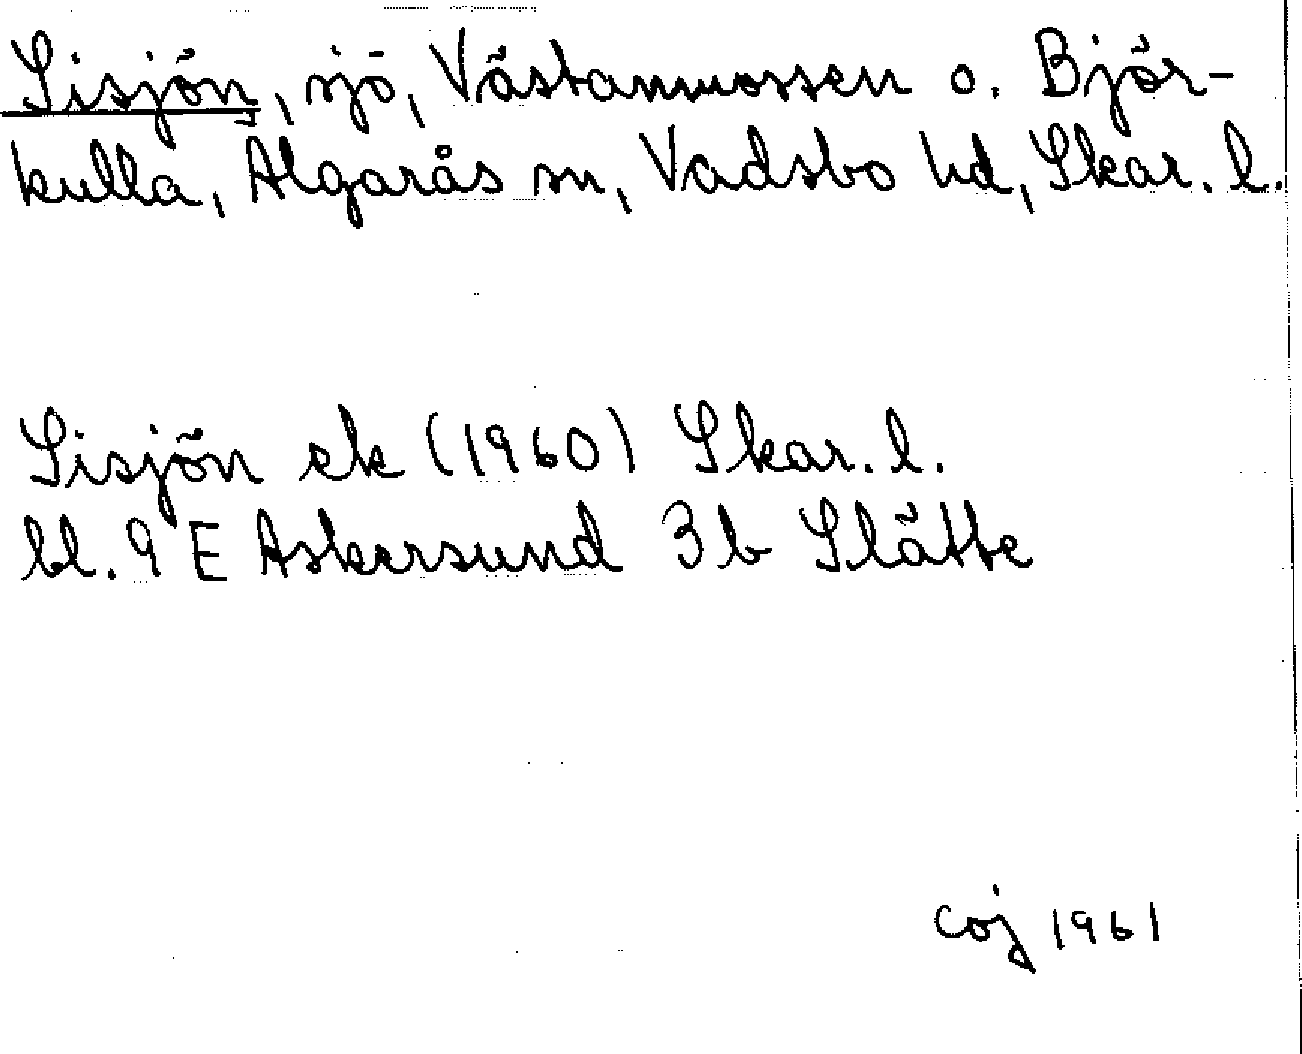 Sisjön, sjö, Västanmossen o. Björ-
kulla, Älgarås sn, Vadsbo hd, Skar. l.
Sisjön ek (1960) Skar. l.
bl. 9 E Askersund 3 b Slätte
coj 1961